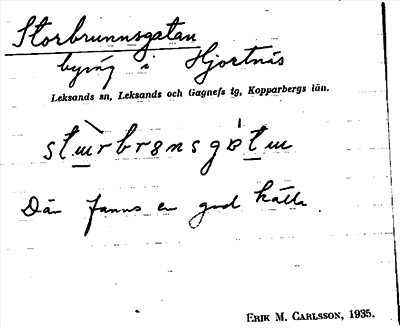 Storbrunnsgatan
byväg i Hjortnäs
Leksands sn, Leksands och Gagnefs tg, Kopparbergs län.
Där fanns en god källa
ERIK M. CARLSSON, 1935.